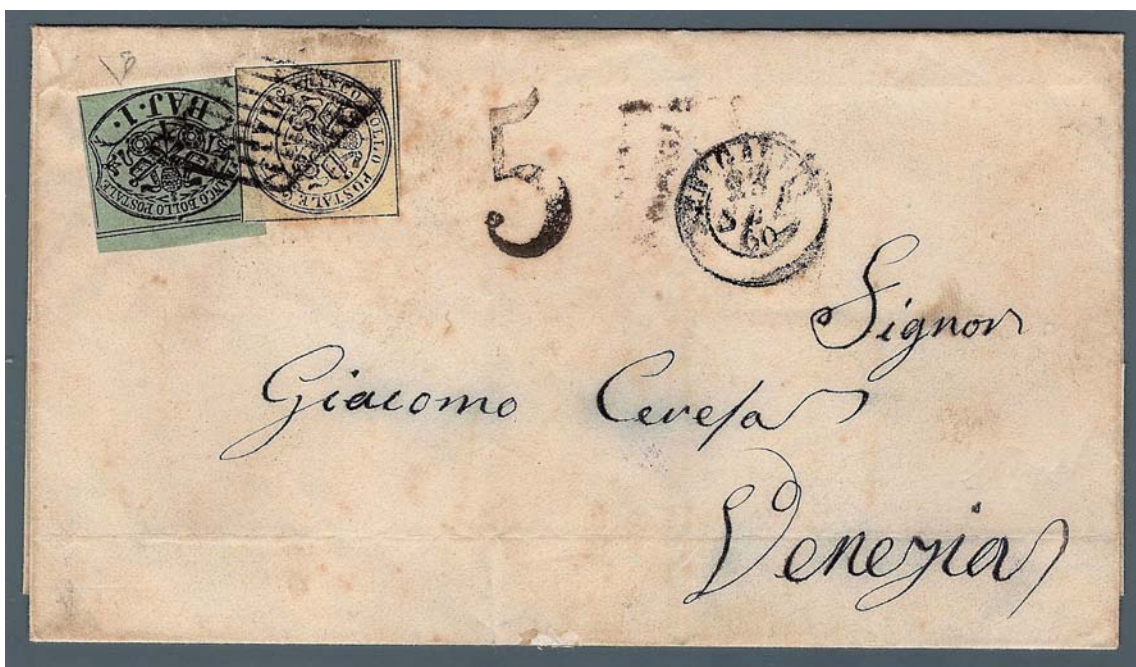 BAJ. 1.
FRANCO BOLLO POSTALE
FRANCO BOLLO POSTALE
5
60
Signor
Giacomo Ceresa
Venezia